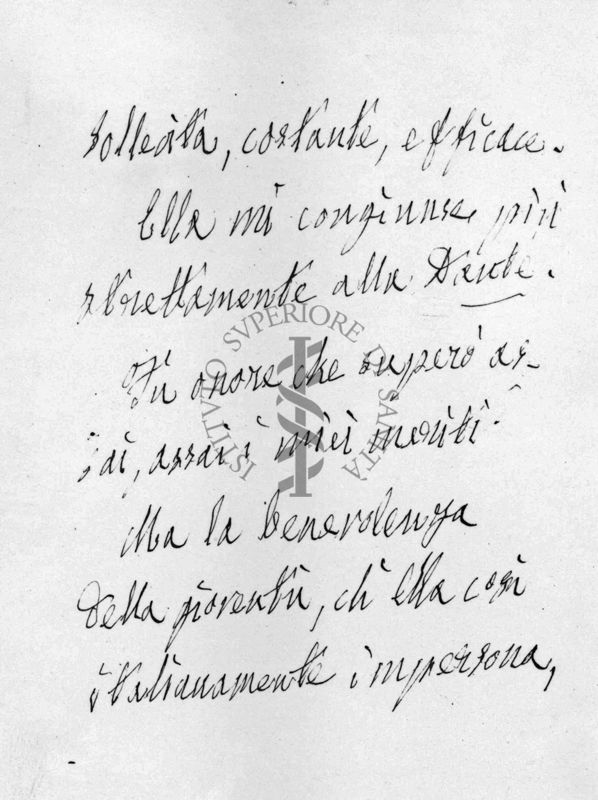 sollecita, costante, efficace.
Ella mi congiunse più
strettamente alla Dante.
Fu onore che superò as-
sai, assai i miei meriti.
Ma la benevolenza
della gioventù, ch'ella così
italianamente impersona,
ISTITVTO SVPERIORE DI SANITÀ